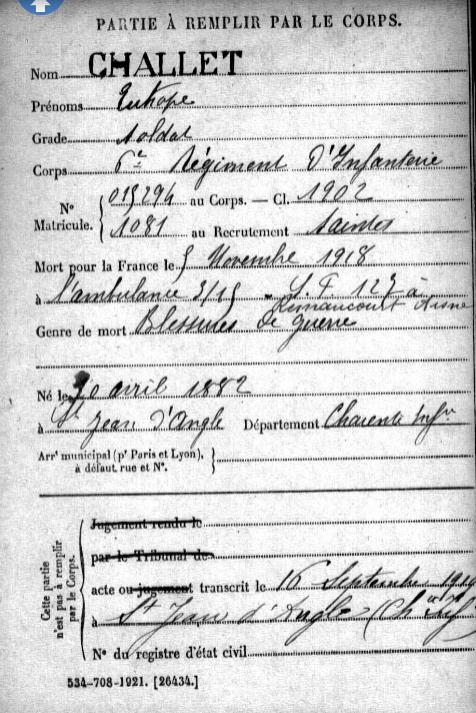 PARTIE À REMPLIR PAR LE CORPS.
Nom CHALLET
Prénoms Eutrope
Grade Soldat
Corps 6e Régiment D'Infanterie
No Matricule. 015294 au Corps. — Cl. 1902
1081 au Recrutement Saintes
Mort pour la France le 5 Novembre 1918
à l'ambulance 3/15 - S. P 127 à
Remaucourt Aisne
Genre de mort Blessures de guerre
Né le 20 avril 1882
à St Jean d'Angle Département Charente Infre
Arrt municipal (pr Paris et Lyon), à défaut rue et No.
Cette partie n'est pas à remplir par le Corps.
Jugement rendu le
par le Tribunal de
acte ou jugement transcrit le 16 Septembre 1919
à St Jean d'Angle (Ch. Infre)
No du registre d'état civil
534-708-1921. [26434.]